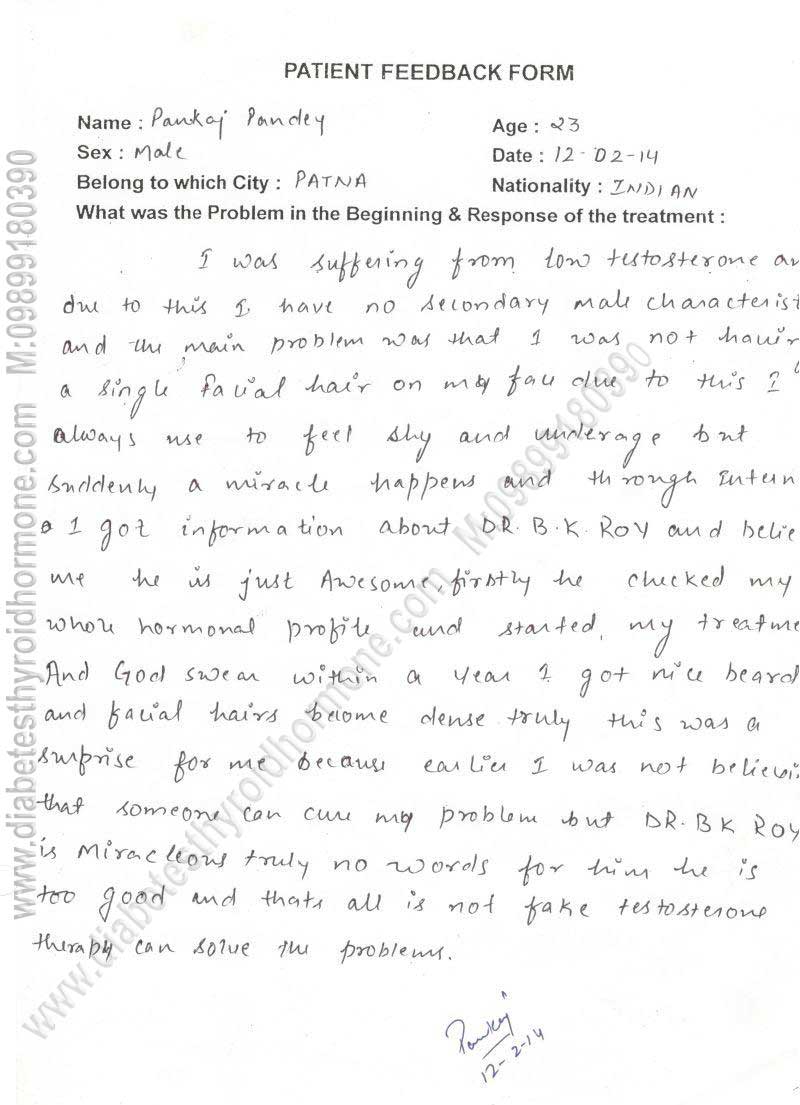 PATIENT FEEDBACK FORM
Name : Pankaj Pandey
Age : 23
Sex : Male
Date : 12-02-14
Belong to which City : PATNA
Nationality : INDIAN
What was the Problem in the Beginning & Response of the treatment :
I was suffering from low testosterone an
due to this I have no secondary male characterist
and the main problem was that I was not havin
a single facial hair on my face due to this I
always use to feel shy and underage but
suddenly a miracle happens and through Intern
I got information about DR. B.K. ROY and belie
me he is just Awesome, firstly he checked my
whole hormonal profile and started my treatme
And God swear within a year I got nice beard
and facial hairs become dense truly this was a
surprise for me because earlier I was not believi
that someone can cure my problem but DR. BK ROY
is Miracleous truly no words for him he is
too good and thats all is not fake testosterone
therapy can solve the problems.
Pankaj
12-2-14
www.diabetesthyroidhormone.com M:09899180390
www.diabetesthyroidhormone.com M:09899180390